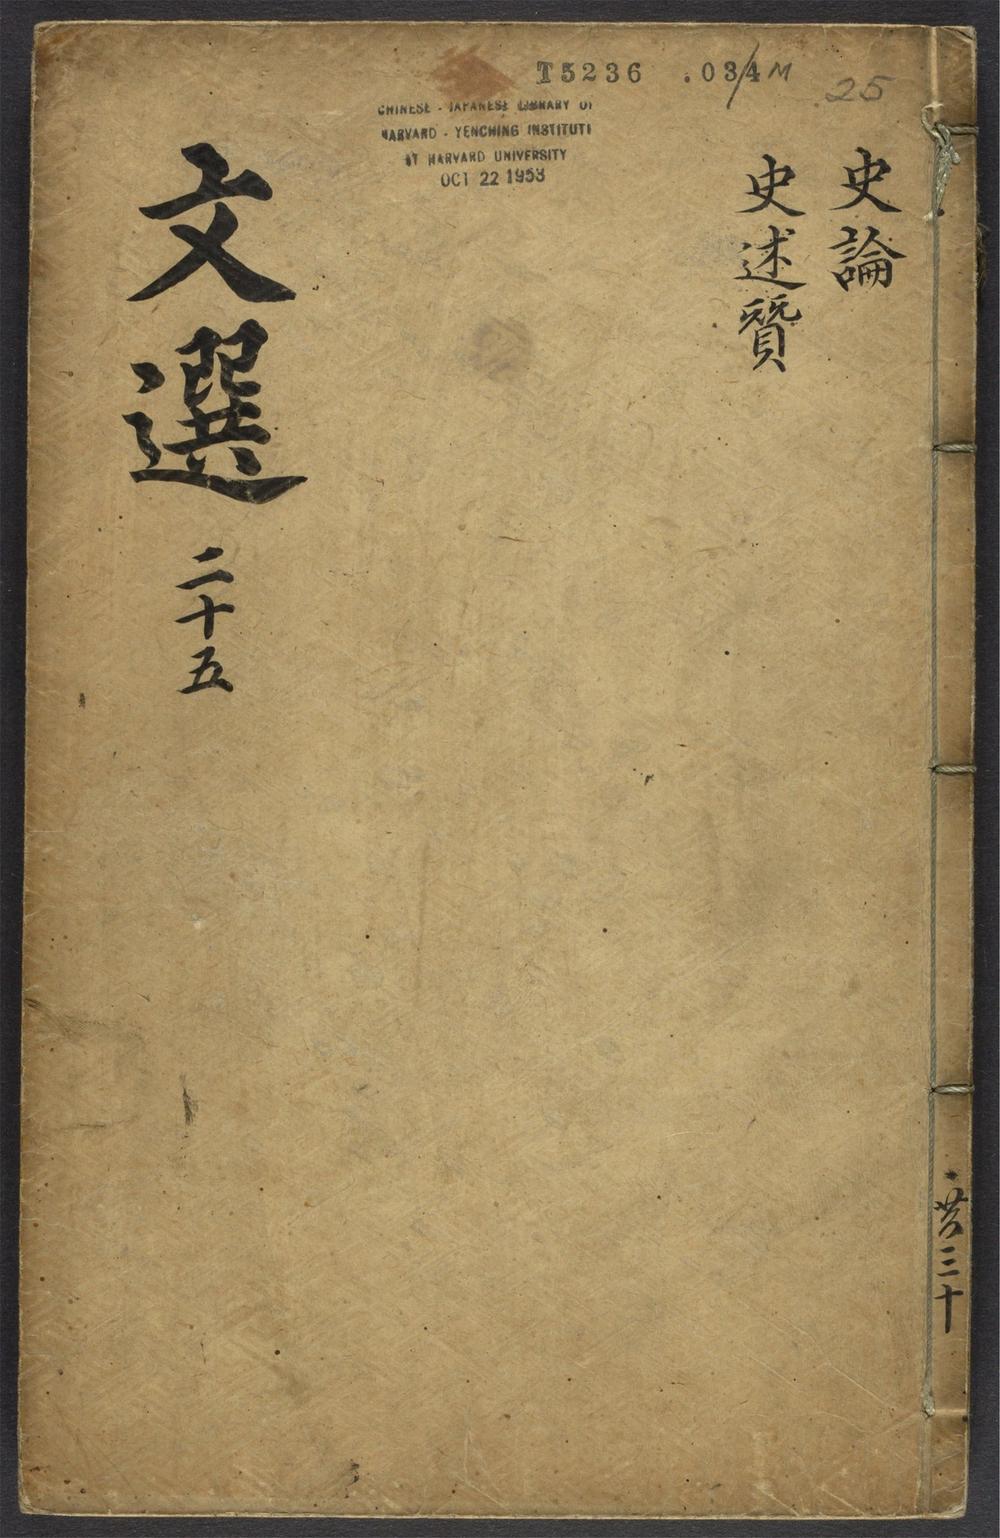 T5236 .034 M 25
CHINESE - JAPANESE LIBRARY OF
HARVARD - YENCHING INSTITUTE
AT HARVARD UNIVERSITY
OCT 22 1953
史論
史述贊
文選 二十五
共三十